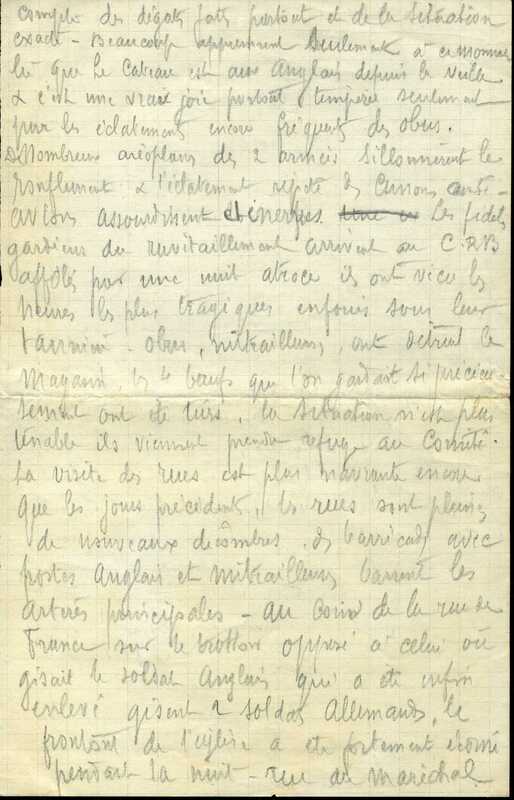 compte des dégats faits partout et de la situation
exacte - Beaucoup apprennent seulement à ce moment
là que Le Cateau est aux Anglais depuis la veille
& c'est une vraie joie partout, tempérée seulement
par les éclatements encore fréquents des obus.
De Nombreux aréoplans des 2 armées sillonnèrent le
ronflement & l'éclatement répété des canons anti-
avions assourdissent et énerves. Les fidels
gardiens du ravitaillement arrivent au C.R.B
affolés par une nuit atroce ils ont vécu les
heures les plus tragiques enfouis sous leur
obus, mitrailleuses, ont détruit le
Magasin, les 4 bœufs que l'on gardait si précieu-
sement ont été tués, la situation n'est plus
tenable ils viennent prendre refuge au Comité.
La visite des rues est plus navrante encore
que les jours précédents, les rues sont pleines
de nouveaux décombres, des barricades avec
postes Anglais et mitrailleuses barrent les
artères principales - au coin de la rue de
France sur le trottoir opposé à celui où
gisait le soldat Anglais qui a été enfin
enlevé gisent 2 soldats Allemands, le
fronton de l'église a été fortement écorné
pendant la nuit - rue du Maréchal